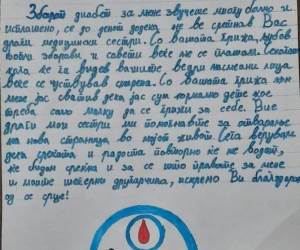 Зборот диабет за мене звучеше многу болно и
исплашено, се до денот додека не ве сретнав Вас
драги медицински сестри. Со вашата грижа, љубов
топли зборови, и совети веќе не се плашам. Секогаш
кога ќе ги видев вашите ведри насмеани лица
веќе се чуствував сигурна. Со вашата грижа кон
мене јас сватив дека јас сум нормално дете кое
треба само малку да се грижи за себе. Вие
драги мои сестри ми помогнавте за отварање
на нова страница во мојот живот. Сега верувам
дека среќата и радоста повторно ќе ме водат,
ќе бидам среќна и за се што правите за мене
и моите шеќерни другарчиња, искрено Ви благодарам
од се срце!